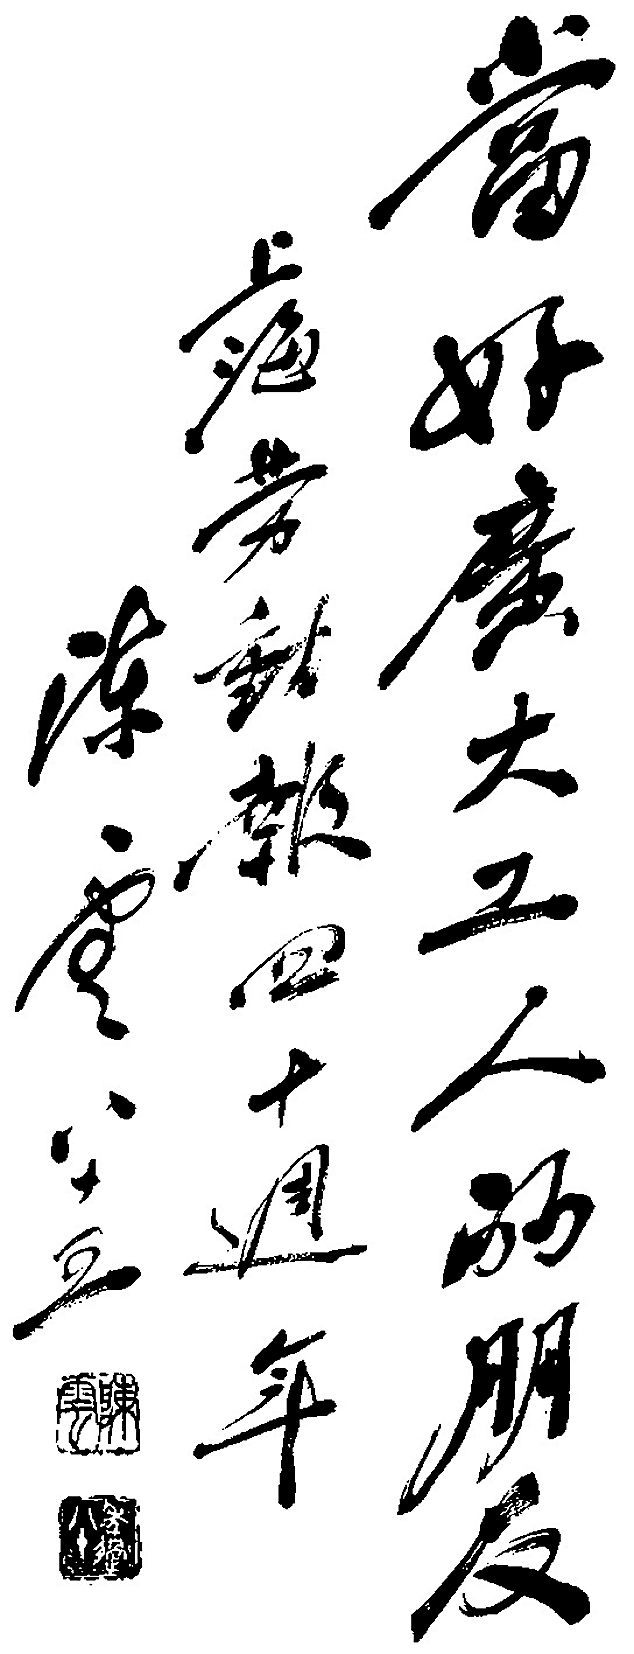 當好廣大工人的朋友
上海劳動報四十週年
陳雲八十五
陳雲